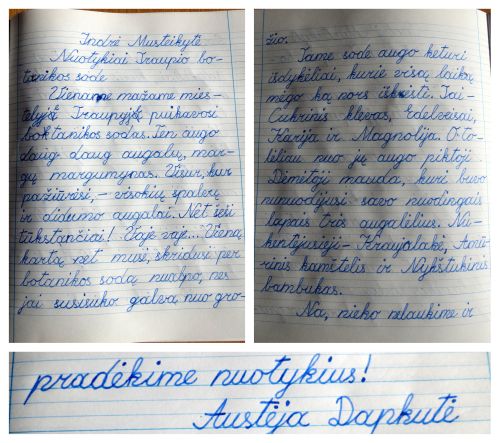 Indrė Musteikytė
Nuotykiai Traupio bo-
tanikos sode
Viename mažame mies-
telyje Traupyje puikavosi
botanikos sodas. Ten augo
daug-daug augalų, mar-
gų margumynas. Visur, kur
pažiūrėsi, – visokių spalvų
ir didumo augalai. Net šeši
tūkstančiai! Vaje vaje... Vieną
kartą net musė, skridusi per
botanikos sodą nualpo, nes
jai susisuko galva nuo gro-
žio.
Tame sode augo keturi
išdykėliai, kurie visą laiką
mėgo ką nors iškrėsti. Tai –
Cukrinis klevas, Edelveisai,
Karija ir Magnolija. O to-
liėliau nuo jų augo piktoji
Dėmėtoji mauda, kuri buvo
nunuodijusi savo nuodingais
lapais tris augalėlius. Nu-
kentėjusieji – Kraujalakė, Amū-
rinis kamštelis ir Nykštukinis
bambukas.
Na, nieko nelaukime ir
pradėkime nuotykius!
Austėja Dapkutė